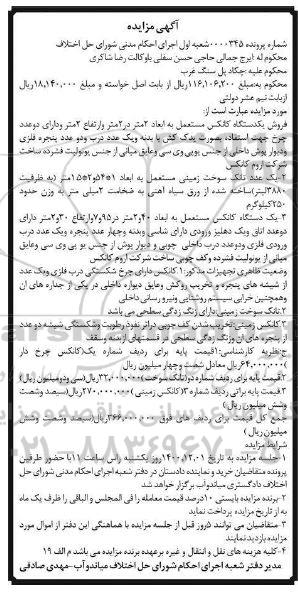 آگهی مزایده
شماره پرونده ۰۰۰۰۳۴۵شعبه اول اجرای احکام مدنی شورای حل اختلاف
محکوم له :ایرج جمالی حاجی حسن سفلی باوکالت رضا شاکری
محکوم علیه :چگاد پل سنگ غرب
محکوم به:مبلغ ۱۱۶,۱۰۶,۲۰۰ریال از بابت اصل خواسته و مبلغ ۱۸,۱۴۰,۰۰۰ریال
ازبابت نیم عشر دولتی
مورد مزایده عبارت است از:
فروش یکدستگاه کانکس مستعمل به ابعاد ۲متر در۲متر وارتفاع ۲متر ودارای دوعدد
چرخ جهت استفاده بصورت یدک کش با بدنه ویک عدد درب ودو عدد پنجره فلزی
ودیوار پوش داخلی از جنس یوپی وی سی وعایق میانی از جنس یونولیت فشرده ساخت
شرکت آروم کانکس
۲-یک عدد تانک سوخت زمینی مستعمل به ابعاد ۱*۵۴و۲*۱۵متر (به ظرفیت
۳۸۸۰لیتر)ساخته شده از ورق سیاه آهنی به ضخامت ۲میلی متر به وزن حدود
۲۵۰کیلوگرم
۳-یک دستگاه کانکس مستعمل به ابعاد ۲*۴۰متر در۷و۹۵وارتفاع ۲*۳۰متر دارای
دوعدد اتاق ویک دهلیز ورودی دارای شاسی وبدنه وچهار عدد پنجره ویک عدد درب
ورودی فلزی ودوعدد درب داخلی چوبی و دیوار پوش از جنس یو پی وی سی وعایق
میانی از یونولیت فشرده وکف چوبی ساخت شرکت آروم کانکس
وضعیت ظاهری تجهیزات مذکور:۱-کانکس دارای چرخ شکستگی درب فلزی ویک عدد
از شیشه های پنجره و تخریب روکش وعایق دیواره داخلی در یکی از جداره های آن
وهمچنین خرابی سیستم روشنایی ونیرو رسانی داخلی
۲.تانک سوخت زمینی:دارای زنگ زدگی سطحی می باشد
۳-کانکس زمینی:تخریب شدن کف چوبی دراثر نفوذ رطوبت وشکستگی شیشه دو عدد
از پنجره های آن وزنگ زدگی سطحی در قسمتهای از بدنه وسقف
ج:نظریه کارشناسی:۱-قیمت پایه برای ردیف شماره یک(کانکس چرخ دار
)۶۴,۰۰۰,۰۰۰ریال معادل شصت وچهار میلیون ریال
۲-قیمت پایه برای ردیف شماره دو(تانک سوخت)۳۲,۰۰۰,۰۰۰ریال(سی ودو میلیون ریال)
۳-قیمت پایه برای ردیف شماره ۳(کانکس زمینی)۲۷۰,۰۰۰,۰۰۰ریال(
میلیون ریال)
جمع کل قیمت برای ردیف های فوق ۳۶۶,۰۰۰,۰۰۰ریال(سیصد وشصت وشش
میلیون ریال)
شرایط مزایده
۱-جلسه مزایده به تاریخ ۱۴۰۰,۱۲,۰۱روز یکشنبه راس ساعت ۱۱با حضور طرفین
پرونده متقاضیان خرید و نماینده دادستان در دفتر شعبه اجرای احکام مدنی شورای حل
اختلاف دادگستری میاندواب برگزار خواهد شد
۲-برنده مزایده بایستی ۱۰درصد قیمت معامله را فی المجلس و الباقی را ظرف یک ماه
به از تاریخ مزایده پرداخت نماید
۳-متقاضیان می توانند ۵روز قبل از جلسه مزایده با هماهنگی این دفتر از اموال مورد
مزایده بازدید نمایند
۴-کلیه هزینه های نقل و انتقال و غیره برعهده برنده مزایده می باشد م الف ۱۹
مدیر دفتر شعبه اجرای احکام شورای حل اختلاف میاندوآب-مهدی صادقی